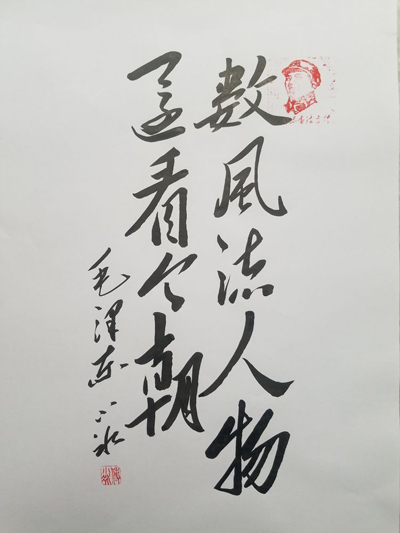 數風流人物
還看今朝
毛澤东